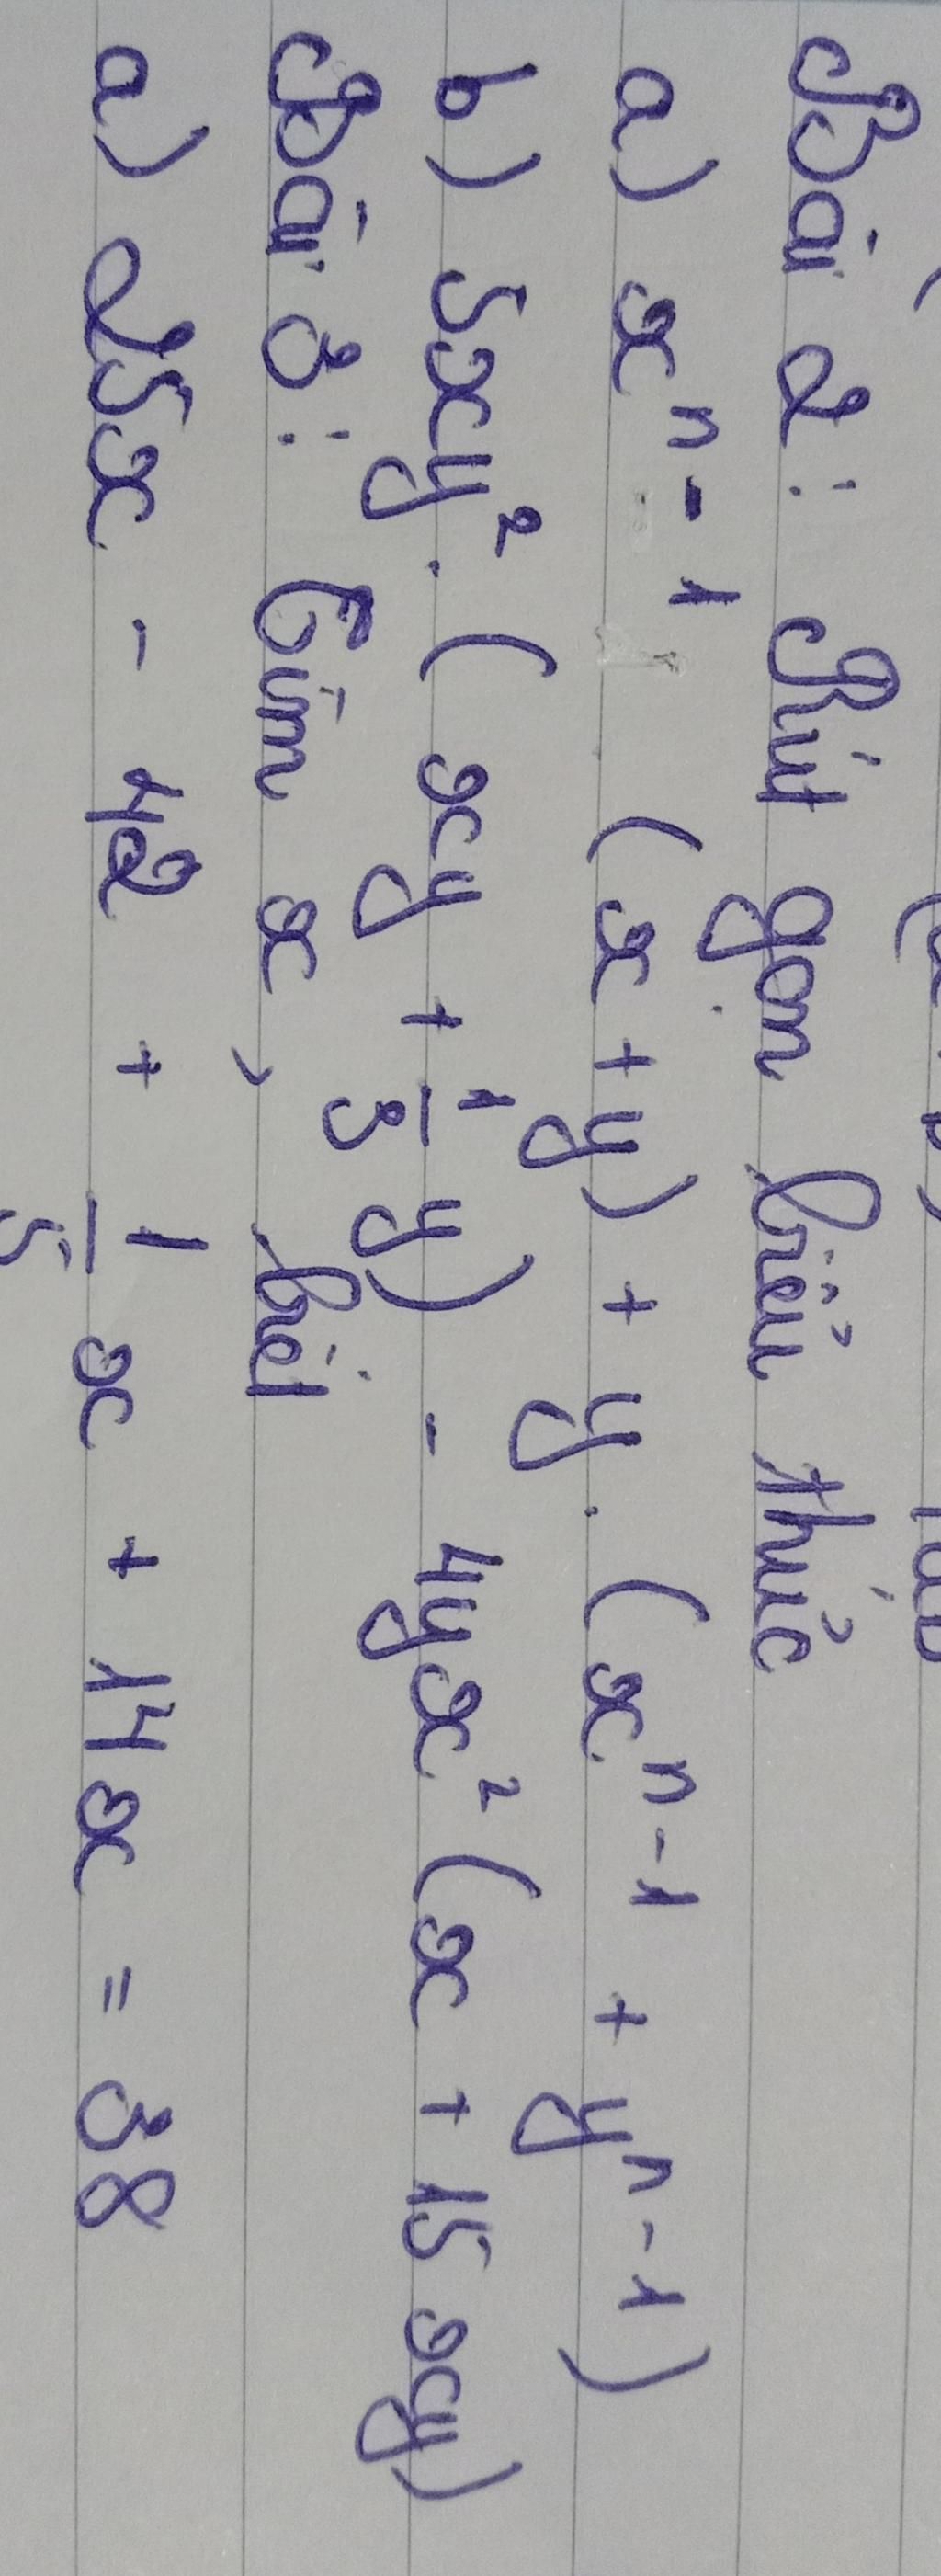 Bài 2: Rút gọn biểu thức
a) xⁿ⁻¹ (x + y) + y . (xⁿ⁻¹ + yⁿ⁻¹)
b) 5xy² . (xy + 1/3 y) - 4yx² (x + 15xy)
Bài 3: Tìm x, biết
a) 25x - 42 + 1/5 x + 14x = 38